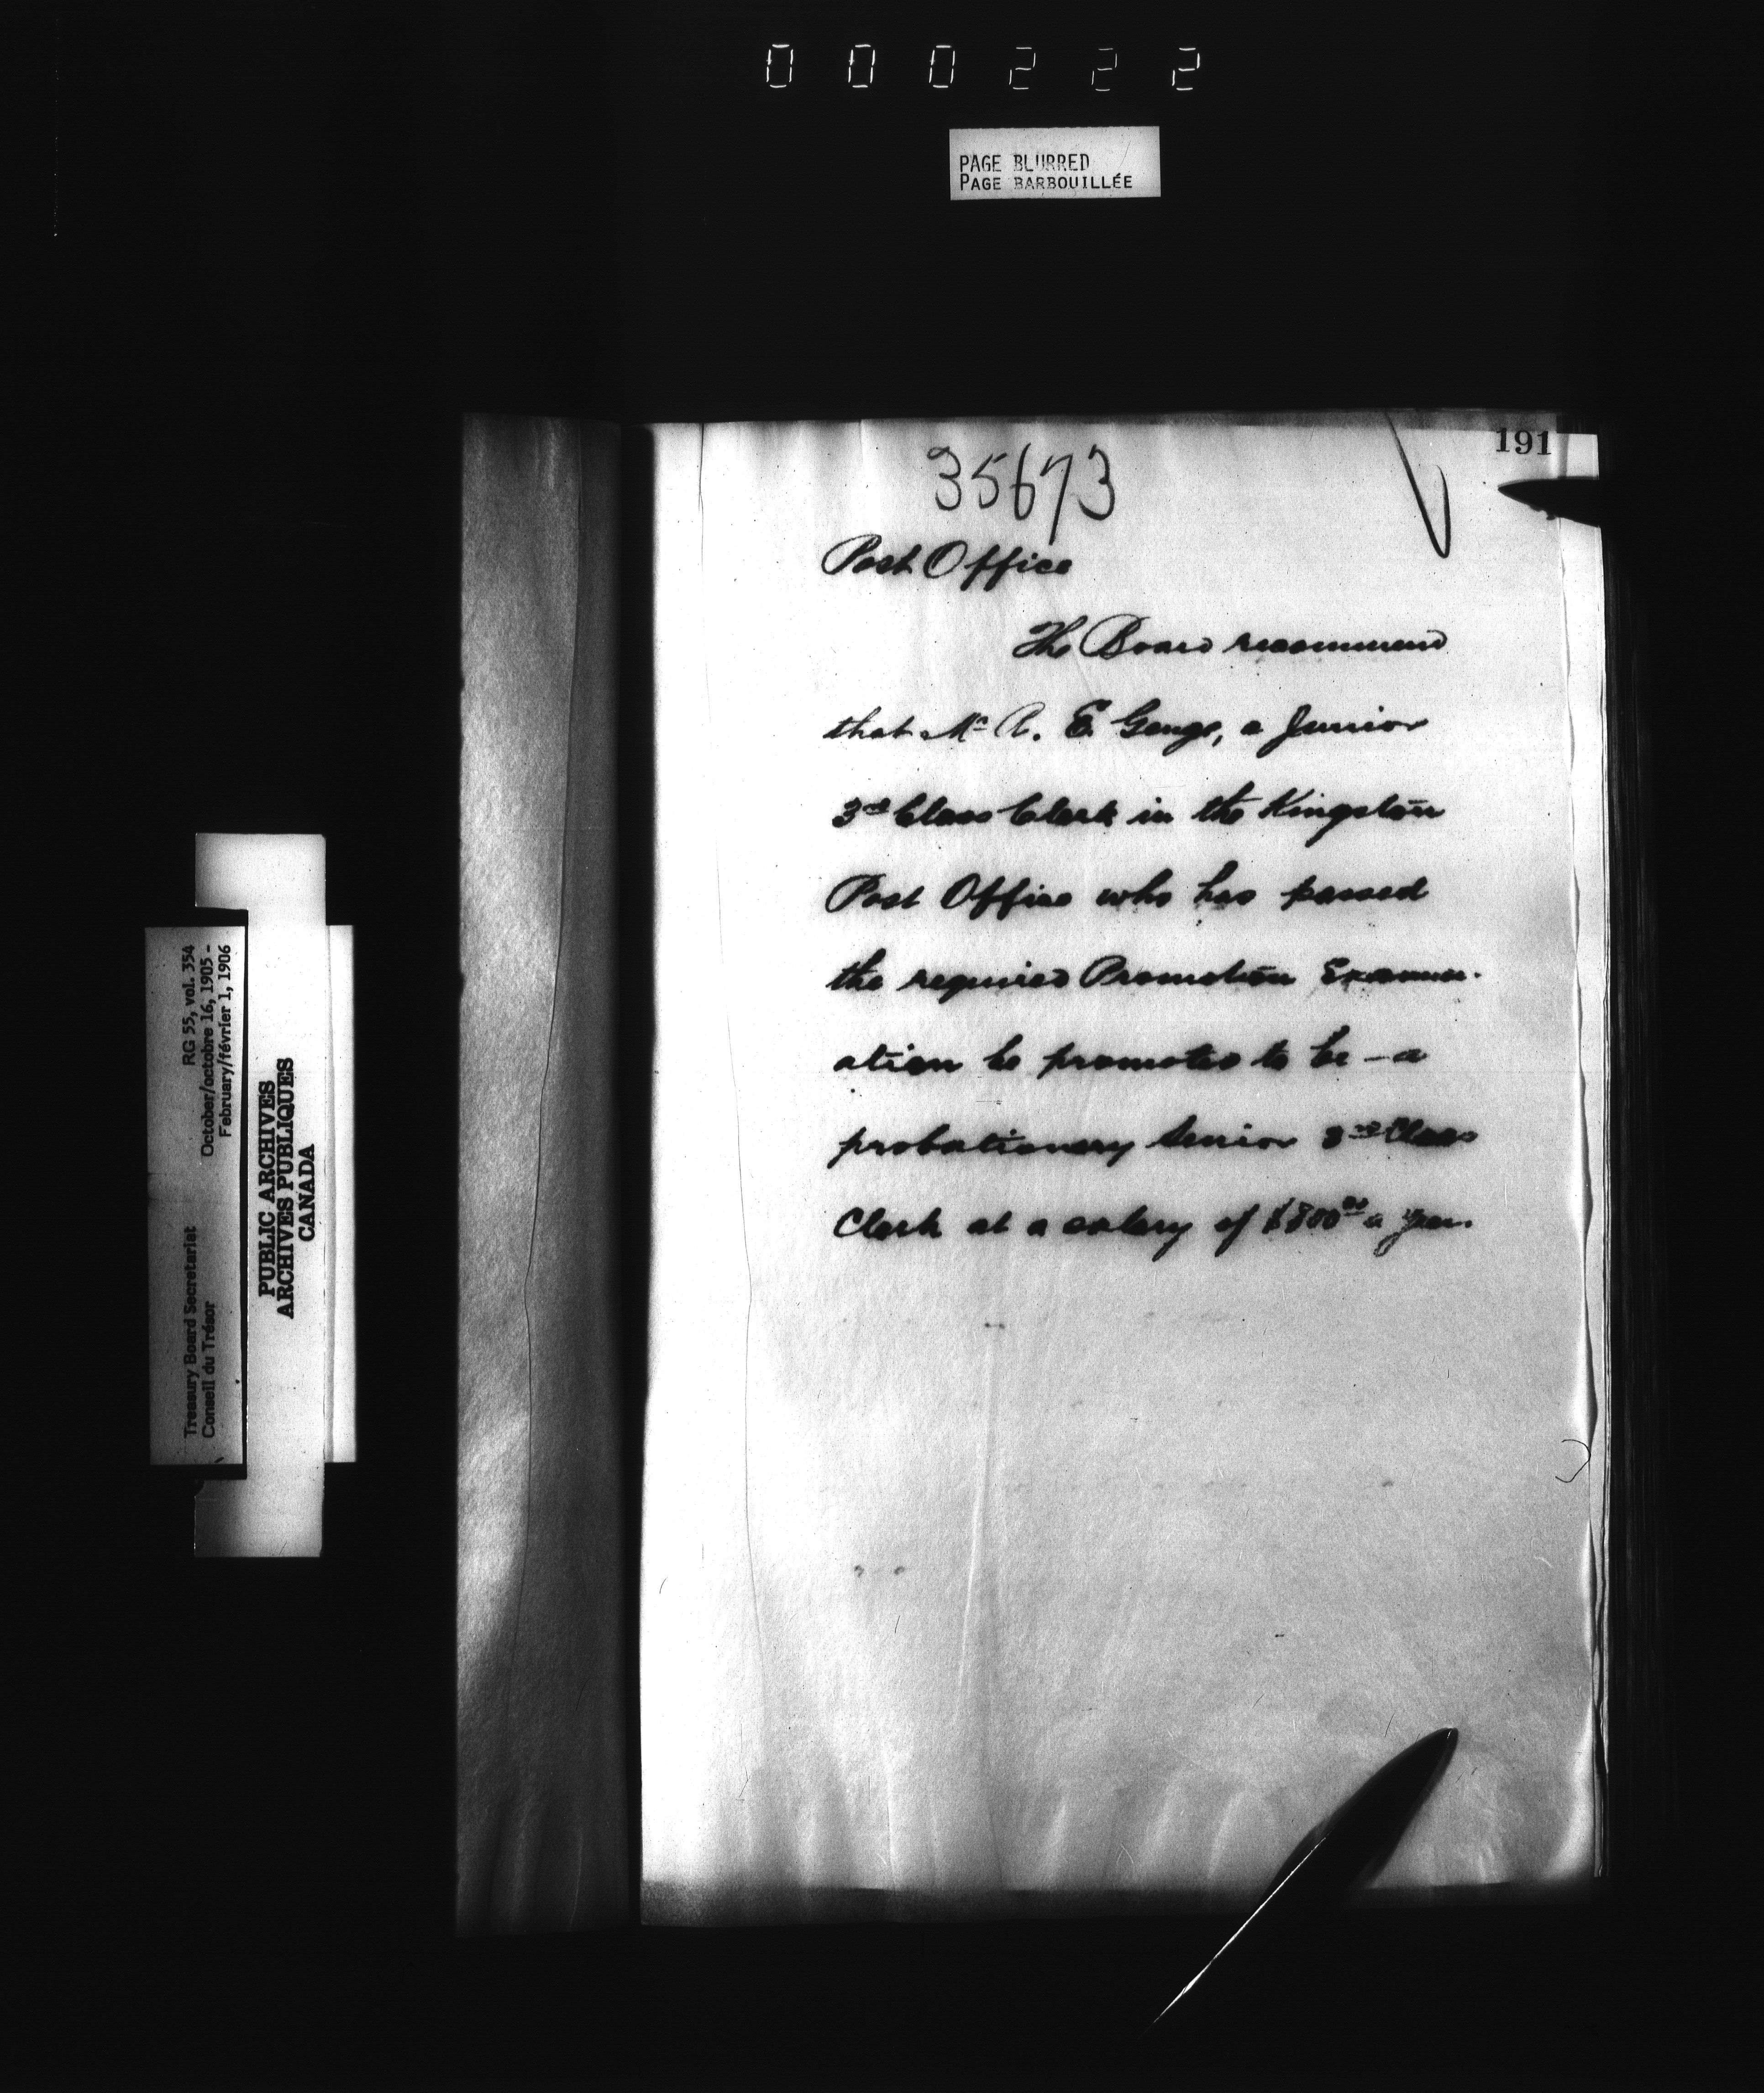 000222
PAGE BLURRED
PAGE BARBOUILLÉE
191
35673
Post Office
The Board recommend
that Mr A. E. Genge, a Junior
3rd Class Clerk in the Kingston
Post Office who has passed
the required Promotion Examin-
ation be promoted to be - a
probationary Senior 3rd Class
Clerk at a salary of $800.00 a year.
Treasury Board Secretariat RG 55, vol. 354
Conseil du Trésor October/octobre 16, 1905 -
February/février 1, 1906
PUBLIC ARCHIVES
ARCHIVES PUBLIQUES
CANADA